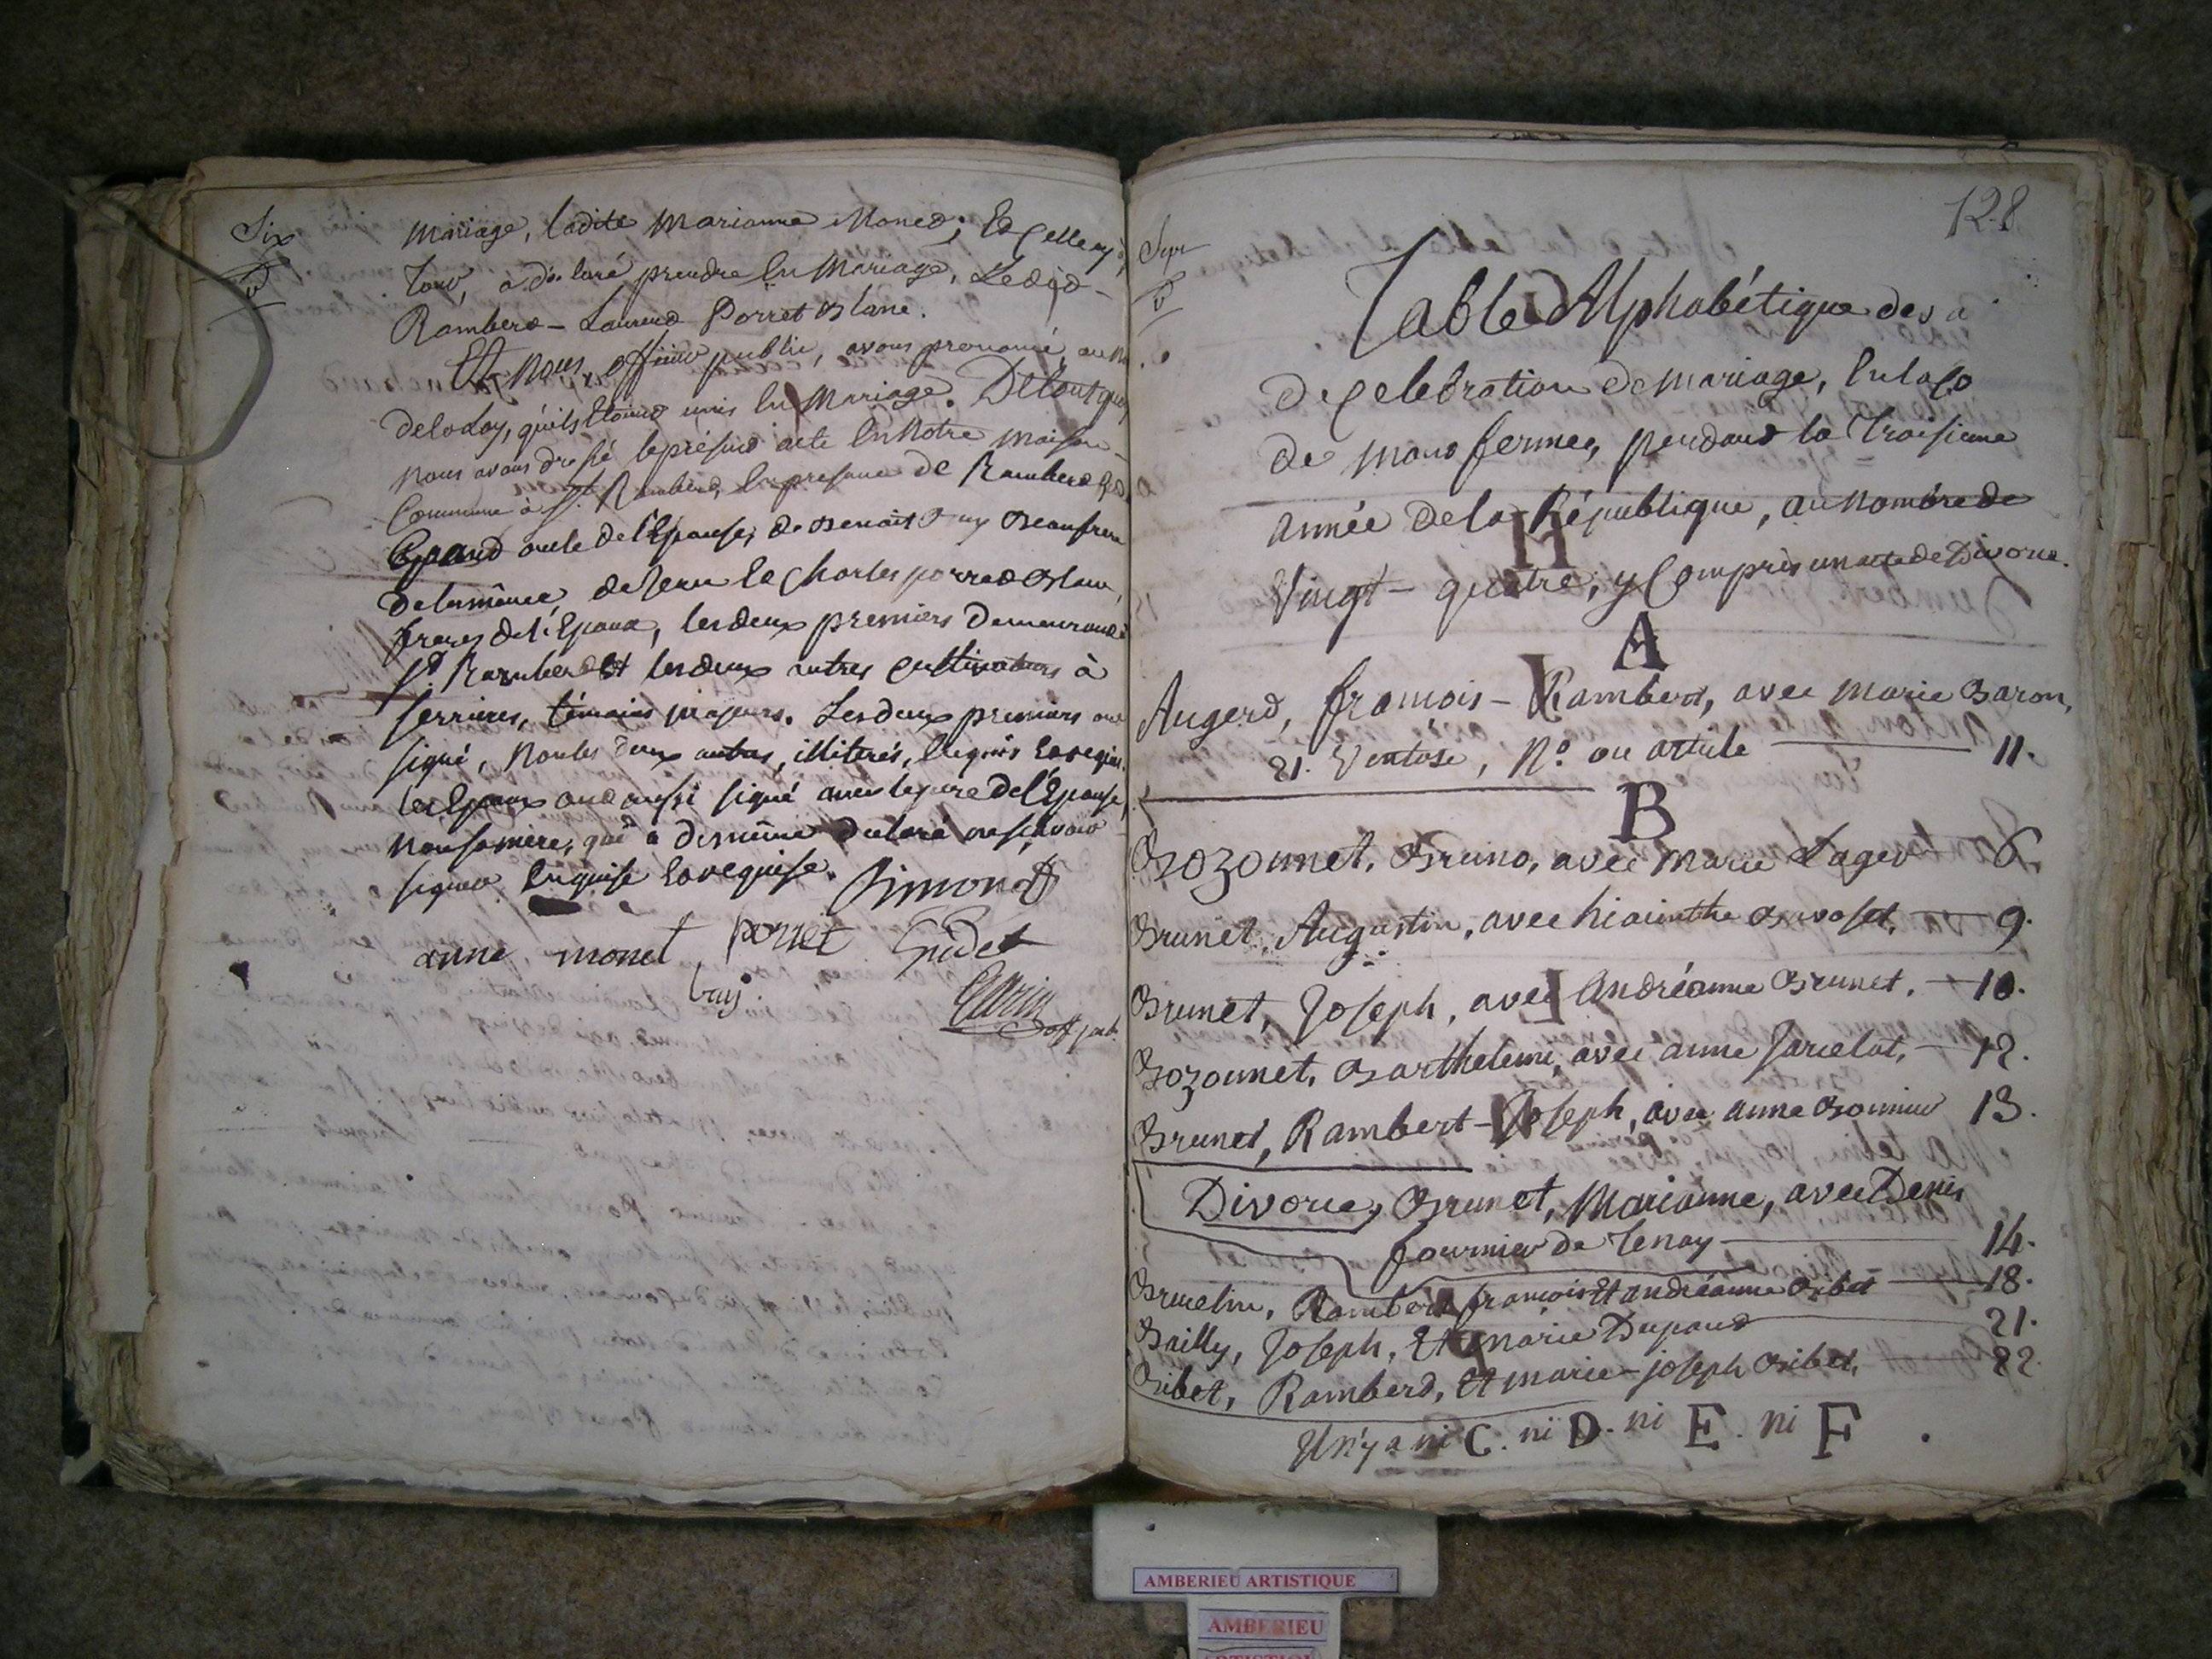 Six
mariage, ladite Marianne Moned; Et celle cy à
Tour, a déclaré prendre En Mariage, Ledid-
Ramberd - Laurend Porret Blanc.
Et nous, officier public, avons prononcé, au N
delaLoy, qu'ils Etoind unis En Mariage. DeTout quoy
nous avons dressé leprésend acte En Notre maison
Commune à St. Ramberd, En presence de Ramberd
oncle de l'Epouse, de Benoit Buy Beaufrere
delamême, de Jean Et Charles porred Blanc,
freres del'Epoux, les deux premiers Demeurand à
St. Ramberd Et les deux autres cultivateurs à
Serrieres, témoins majeurs. Les deux premiers ont
signé, Non les deux autres, illiterés, Enquis Et requis.
les Epoux ond aussi signé avec le pere de l'Epouse,
Non sa mere, qui a de même declaré ne scavoir
signer Enquise Et requise. Simond
anne monet porret Gudet
buy.
Garin
off. pub.
Sept
128
Table Alphabétique des a
de celebration de mariage, En la Co
de mont ferme, pendant la Troisieme
année de la République, au nombre de
Vingt-quatre, y Compris un acte de Divorce.
A
Augerd, francois-Rambert, avec Marie Baron,
21. Ventose, N.º ou article 11.
B
Bozonnet, Bruno, avec Marie Lager 6.
Brunet, Augustin, avec hiacinthe Bavoset, 9.
Brunet, Joseph, avec Andréanne Brunet. 10.
Bozonnet, Barthelemi, avec anne Jarelot, 12.
Brunet, Rambert-Joseph, avec anne Bonnier 13.
Divorce, Brunet, Marianne, avec Denis
fournier de Tenay 14.
Brucelin, Rambert francois Et andréanne Bibet 18.
Bailly, Joseph, Et Marie Dupond 21.
Bibet, Ramberd, Et marie-joseph Bibet, 22.
Il n'y a ni C. ni D. ni E. ni F.
AMBERIEU ARTISTIQUE
AMBERIEU
ARTISTIQUE